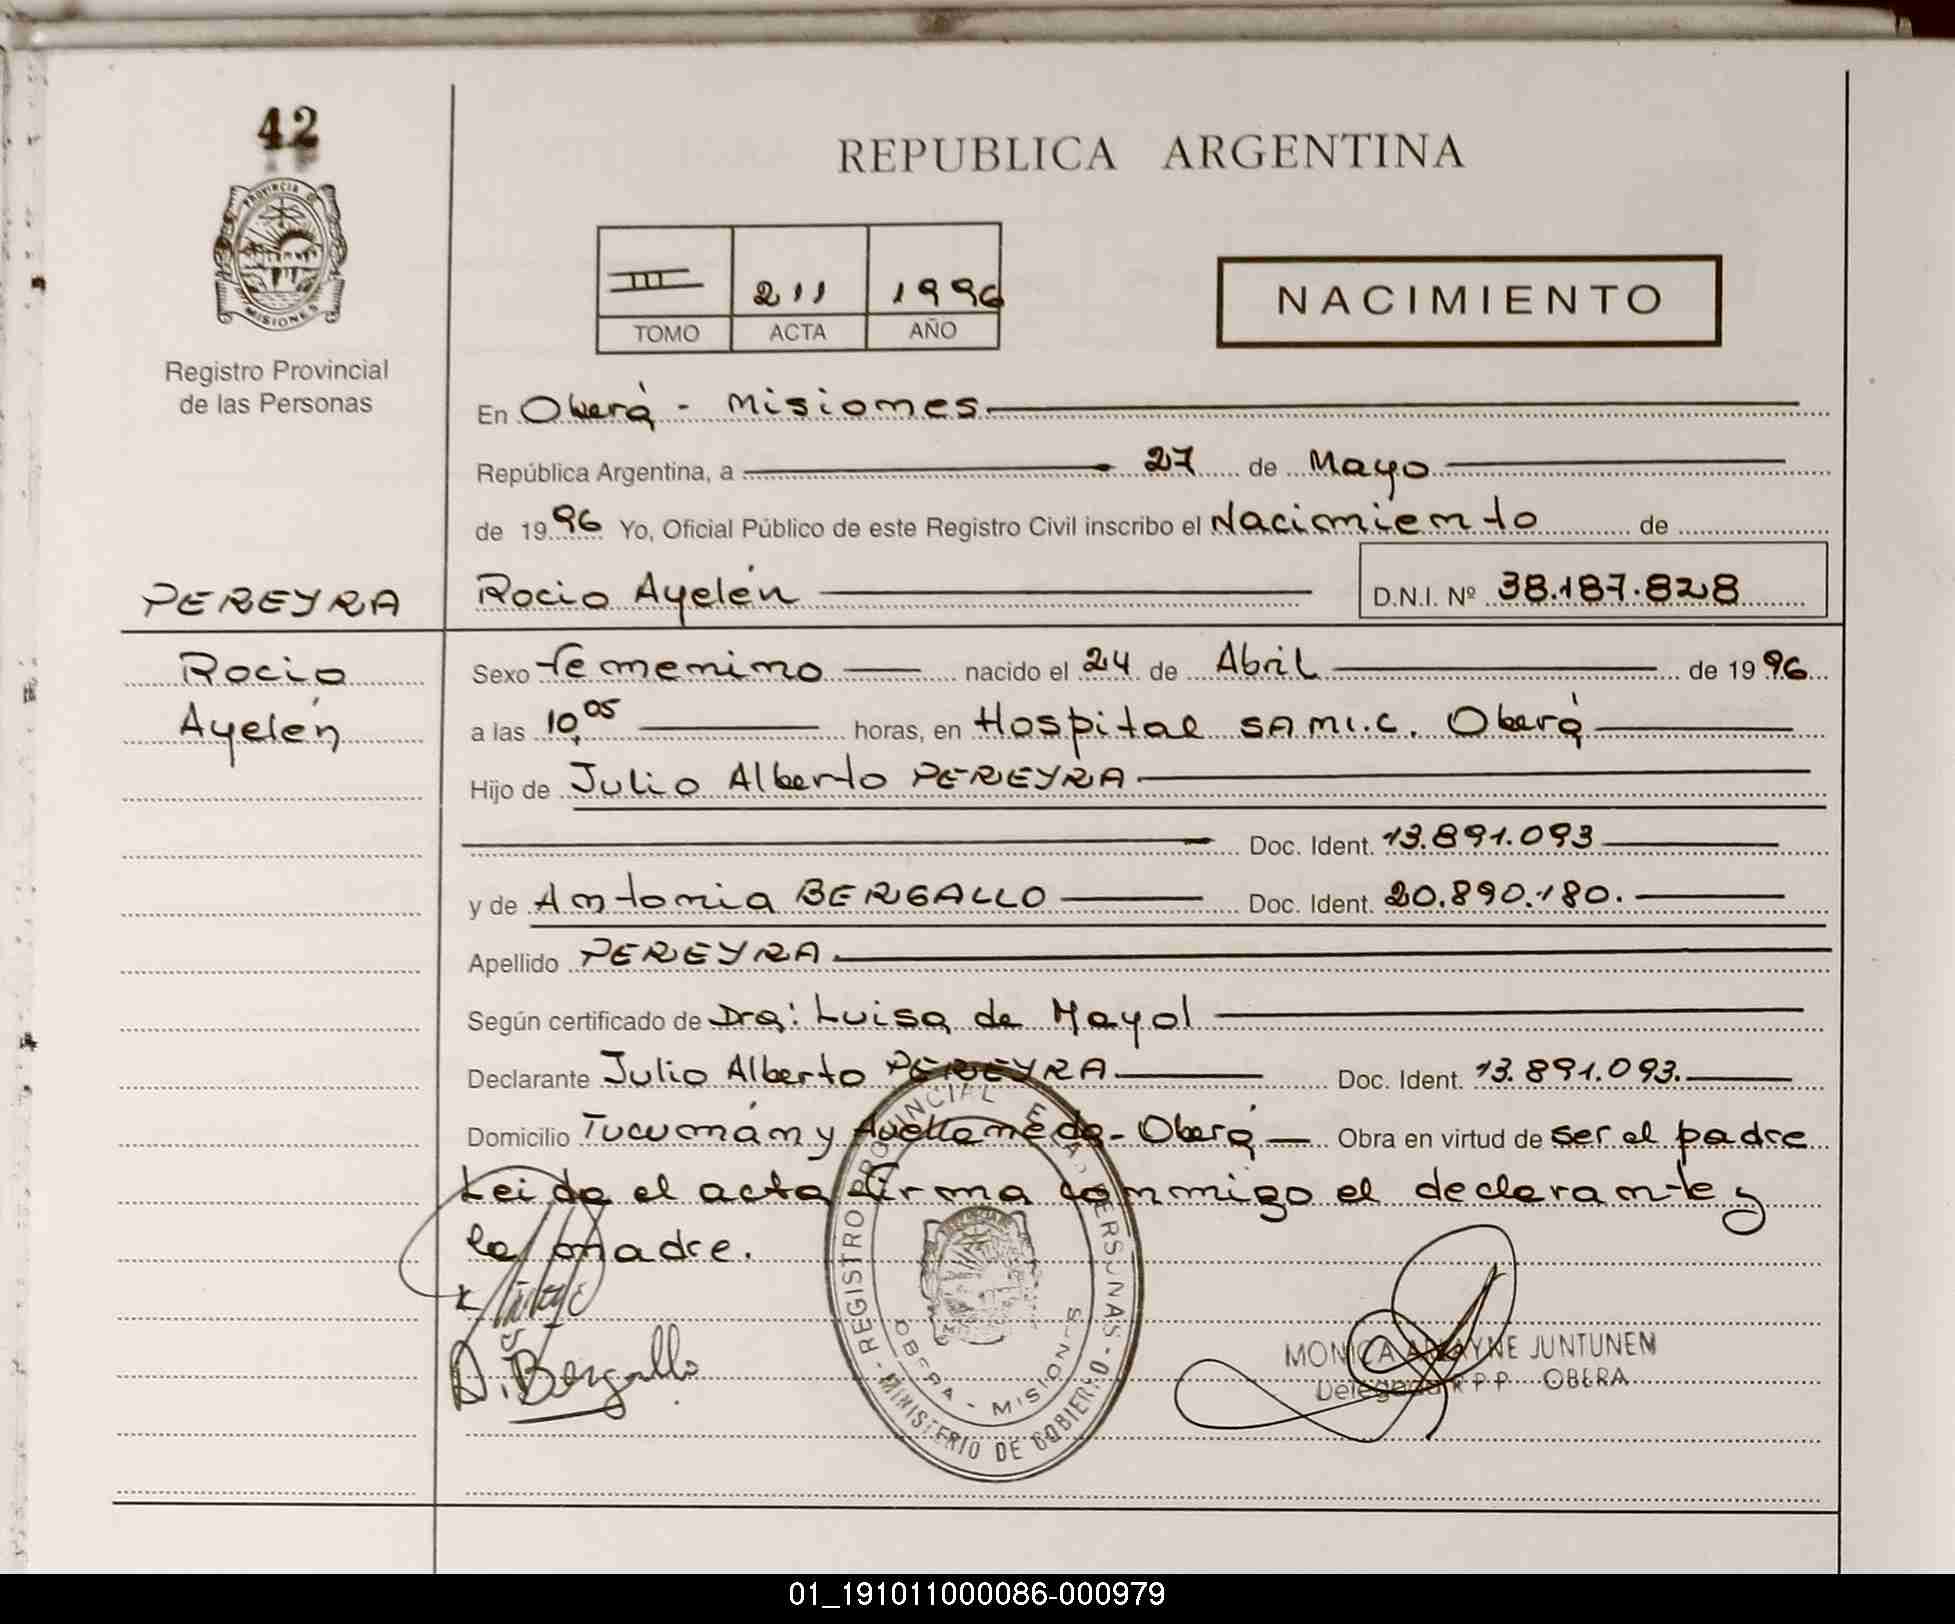 42
PROVINCIA DE
MISIONES
Registro Provincial
de las Personas
REPUBLICA ARGENTINA
III 211 1996
TOMO ACTA AÑO
NACIMIENTO
En Oberá - Misiones
República Argentina, a 27 de Mayo
de 1996 Yo, Oficial Público de este Registro Civil inscribo el Nacimiento de
PEREYRA Rocio Ayelén D.N.I. Nº 38.187.828
Rocio Sexo femenino nacido el 24 de Abril de 1996
Ayelén a las 10,05 horas, en Hospital SAMI.C. Oberá
Hijo de Julio Alberto PEREYRA
Doc. Ident. 13.891.093
y de Antonia BERGALLO Doc. Ident. 20.890.180.
Apellido PEREYRA
Según certificado de Dra: Luisa de Mayol
Declarante Julio Alberto PEREYRA Doc. Ident. 13.891.093.
Domicilio Tucumán y Avellaneda - Oberá Obra en virtud de ser el padre
Leida el acta firma conmigo el declarante y
la madre.
A. Bergallo
REGISTRO PROVINCIAL PERSONAS - MINISTERIO DE GOBIERNO
OBERA - MISIONES
MONICA JUNTUNEM
Delegada R P P OBERA
01_191011000086-000979